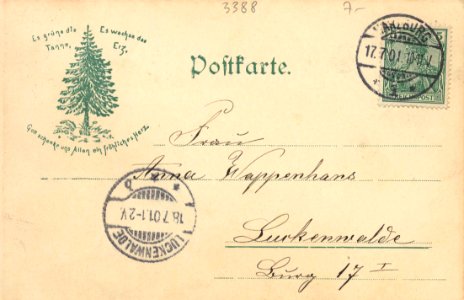 3388
7.-
Es grüne die Tanne,
Es wachse das Erz,
Gott schenke uns Allen ein fröhliches Herz.
Postkarte.
17.7.01
Frau
Anna Wappenhans
Luckenwalde
Burg 17 I
18.7.01.1-2V.
LUCKENWALDE